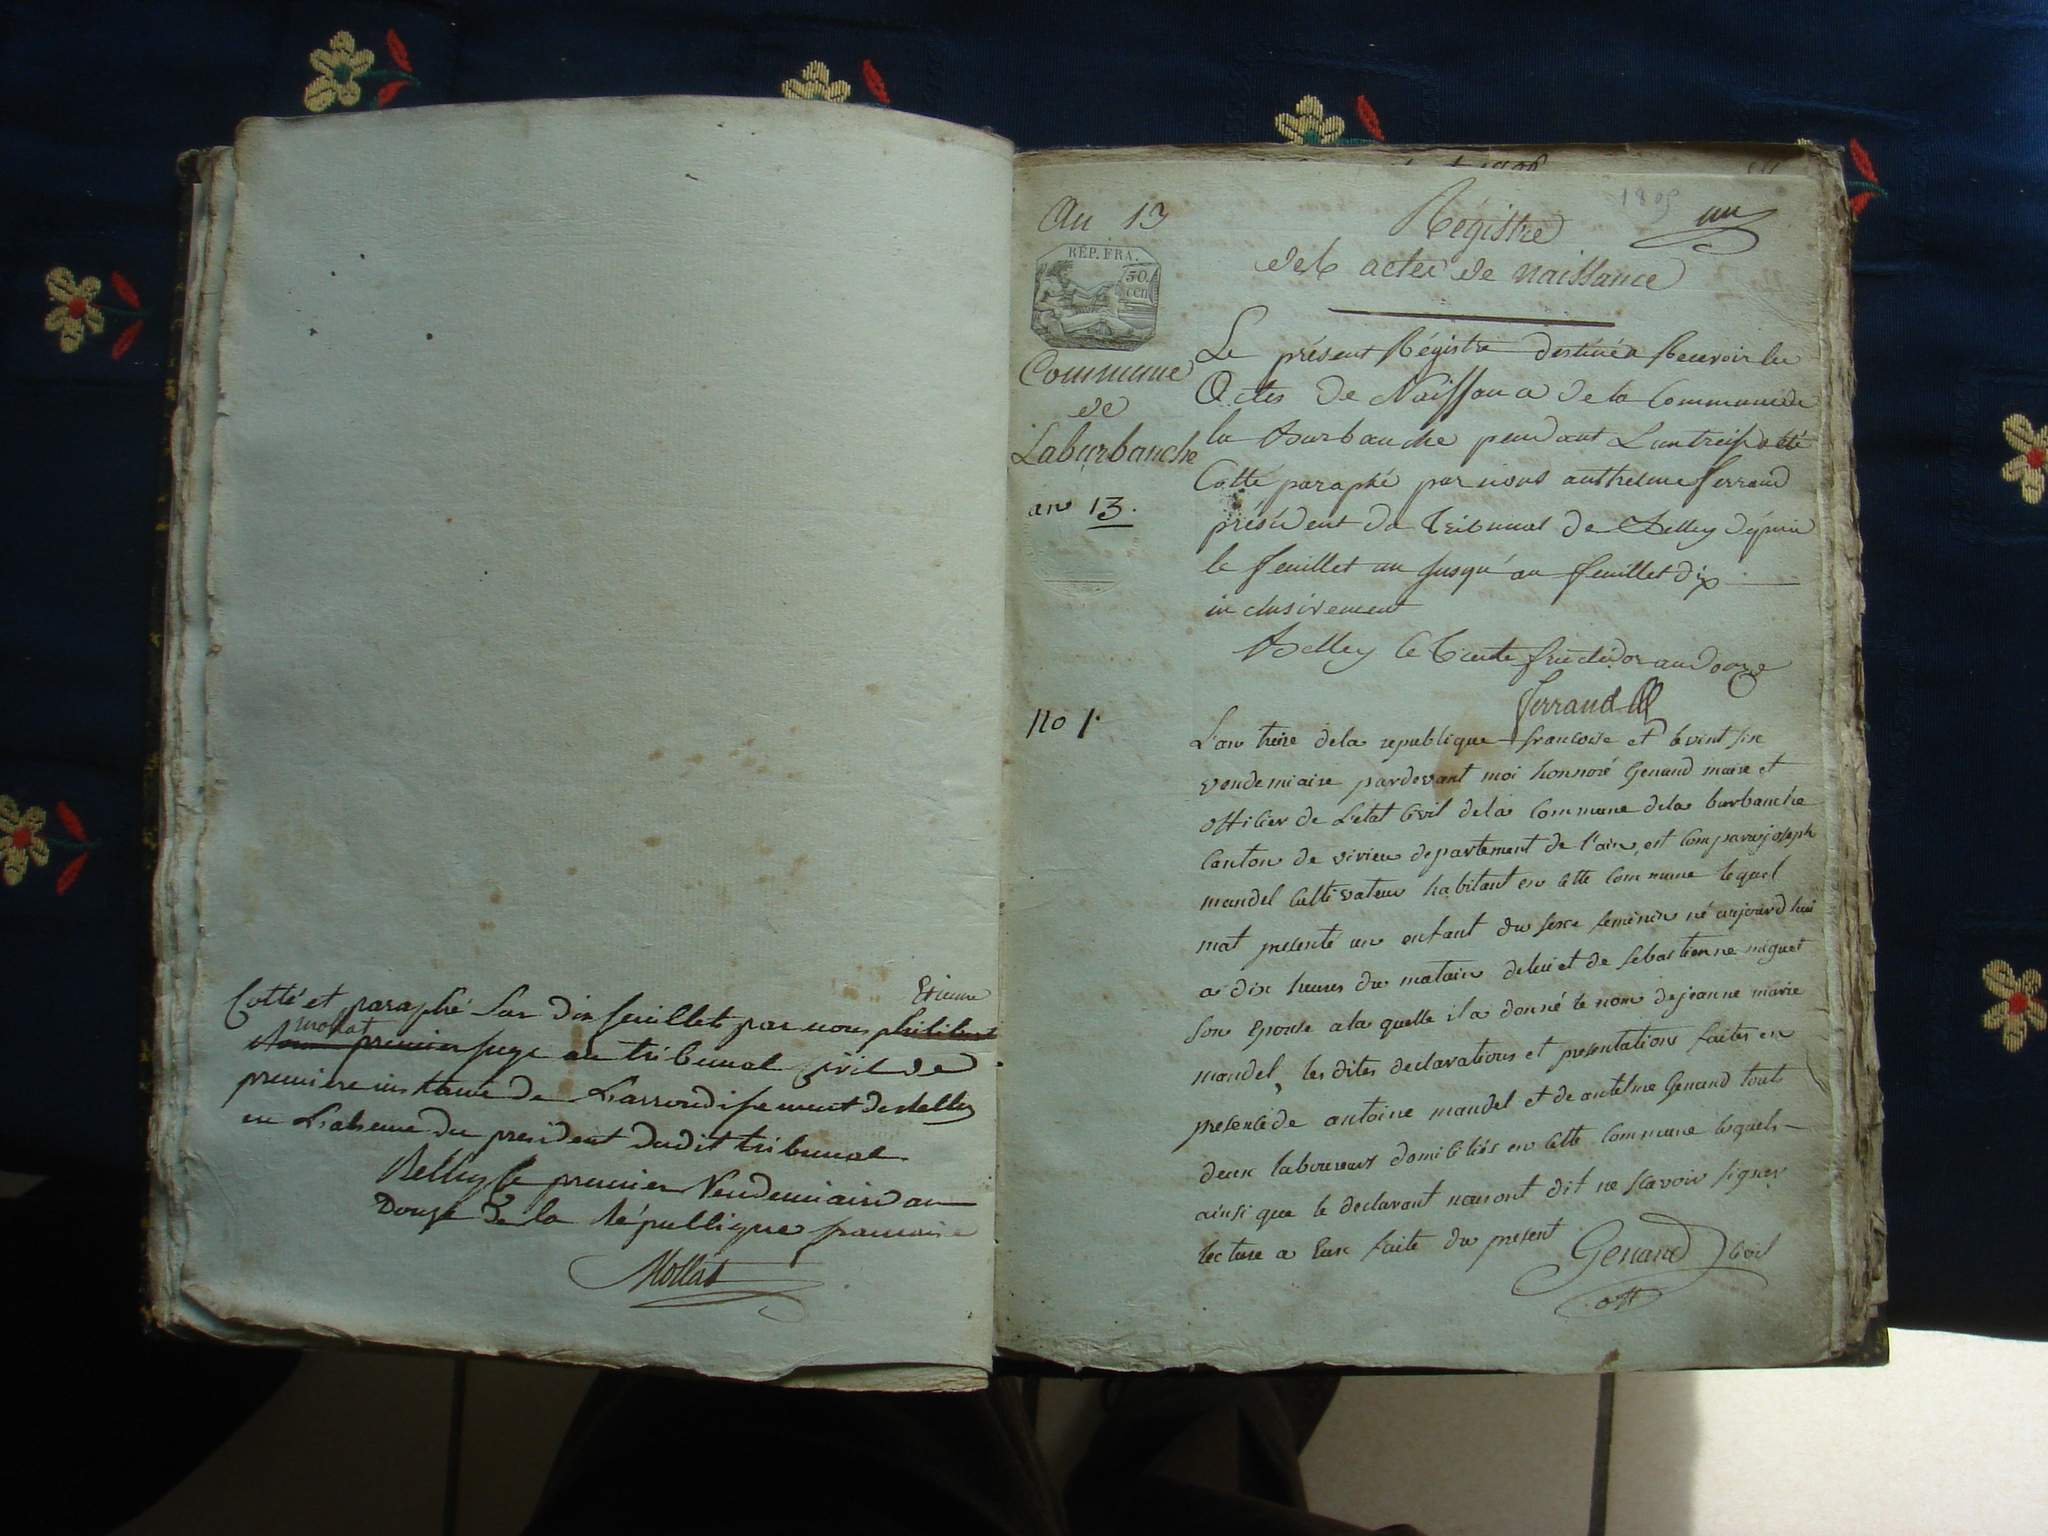 Cotté et paraphé sur dix feuillets par nous philibert Etienne
mollat premier juge au tribunal civil de
premiere instance de L'arrondissement de Belley
en L'absence du president dudit tribunal
Belley le premier Vendemiaire an
Douze de la République francaise
Mollat
An 13
RÉP. FRA.
50.
cen
Commune
de
Laburbanche
an 13.
1805
un
Régistre
des actes de naissance
Le présent Régistre destiné a Recevoir les
Actes de Naissance de la Commune de
la Burbanche pendant L'an treize a été
Cotté paraphé par nous anthelme ferrand
président du Tribunal de Belley dépuis
le feuillet un jusqu'au feuillet dix
inclusivement
Belley le Trente fructidor an douze
ferrand
No 1.
L'an treize dela republique francoise et le vint six
vendemiaire pardevant moi honnoré Genand maire et
officier de L'etat Civil dela Commune dela burbanche
Canton de virieu departement de l'ain, est comparu joseph
mandel Cultivateur habitant en cette commune lequel
mat presenté un enfant du sexe feminin né aujourd'hui
a dix heures du matain de lui et de sebastienne miguet
son epouse a la quelle il a donné le nom de jeanne marie
mandel, les dites declarations et presentations faites en
presence de antoine mandel et de antelme Genand touts
deux laboureurs domiciliés en cette commune lesquels
ainsi que le declarant nous ont dit ne scavoir signer
lecture a Eux faite du present
Genand
off civil